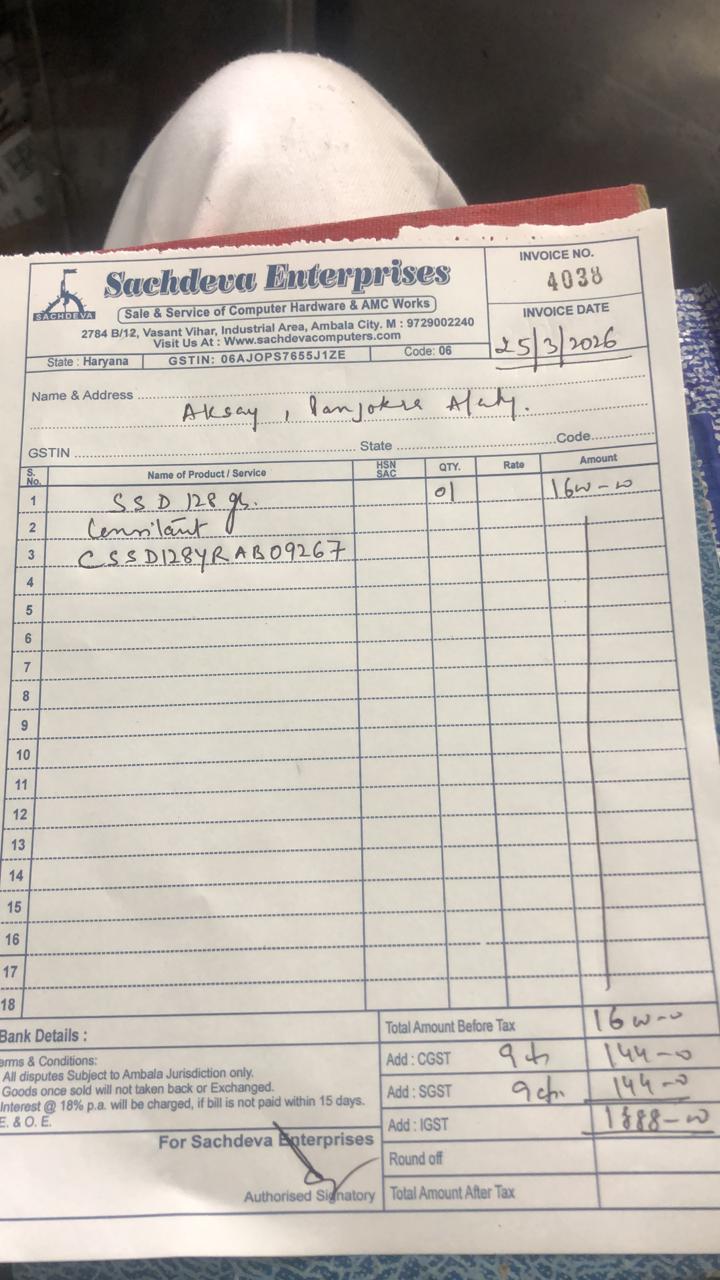 Sachdeva Enterprises
SACHDEVA
Sale & Service of Computer Hardware & AMC Works
2784 B/12, Vasant Vihar, Industrial Area, Ambala City. M : 9729002240
Visit Us At : Www.sachdevacomputers.com
State : Haryana GSTIN: 06AJOPS7655J1ZE Code: 06
INVOICE NO.
4038
INVOICE DATE
25/3/2026
Name & Address
Aksay,
GSTIN State Code
S. No. Name of Product / Service HSN SAC QTY. Rate Amount
1 SSD 128 gb. 01 1600-00
2
3 CSSD128YRAB09267
4
5
6
7
8
9
10
11
12
13
14
15
16
17
18
Bank Details :
erms & Conditions:
All disputes Subject to Ambala Jurisdiction only.
Goods once sold will not taken back or Exchanged.
Interest @ 18% p.a. will be charged, if bill is not paid within 15 days.
E. & O. E.
For Sachdeva Enterprises
Authorised Signatory
Total Amount Before Tax 1600-0
Add : CGST 9% 144-0
Add : SGST 9% 144-0
Add : IGST 1888-00
Round off
Total Amount After Tax